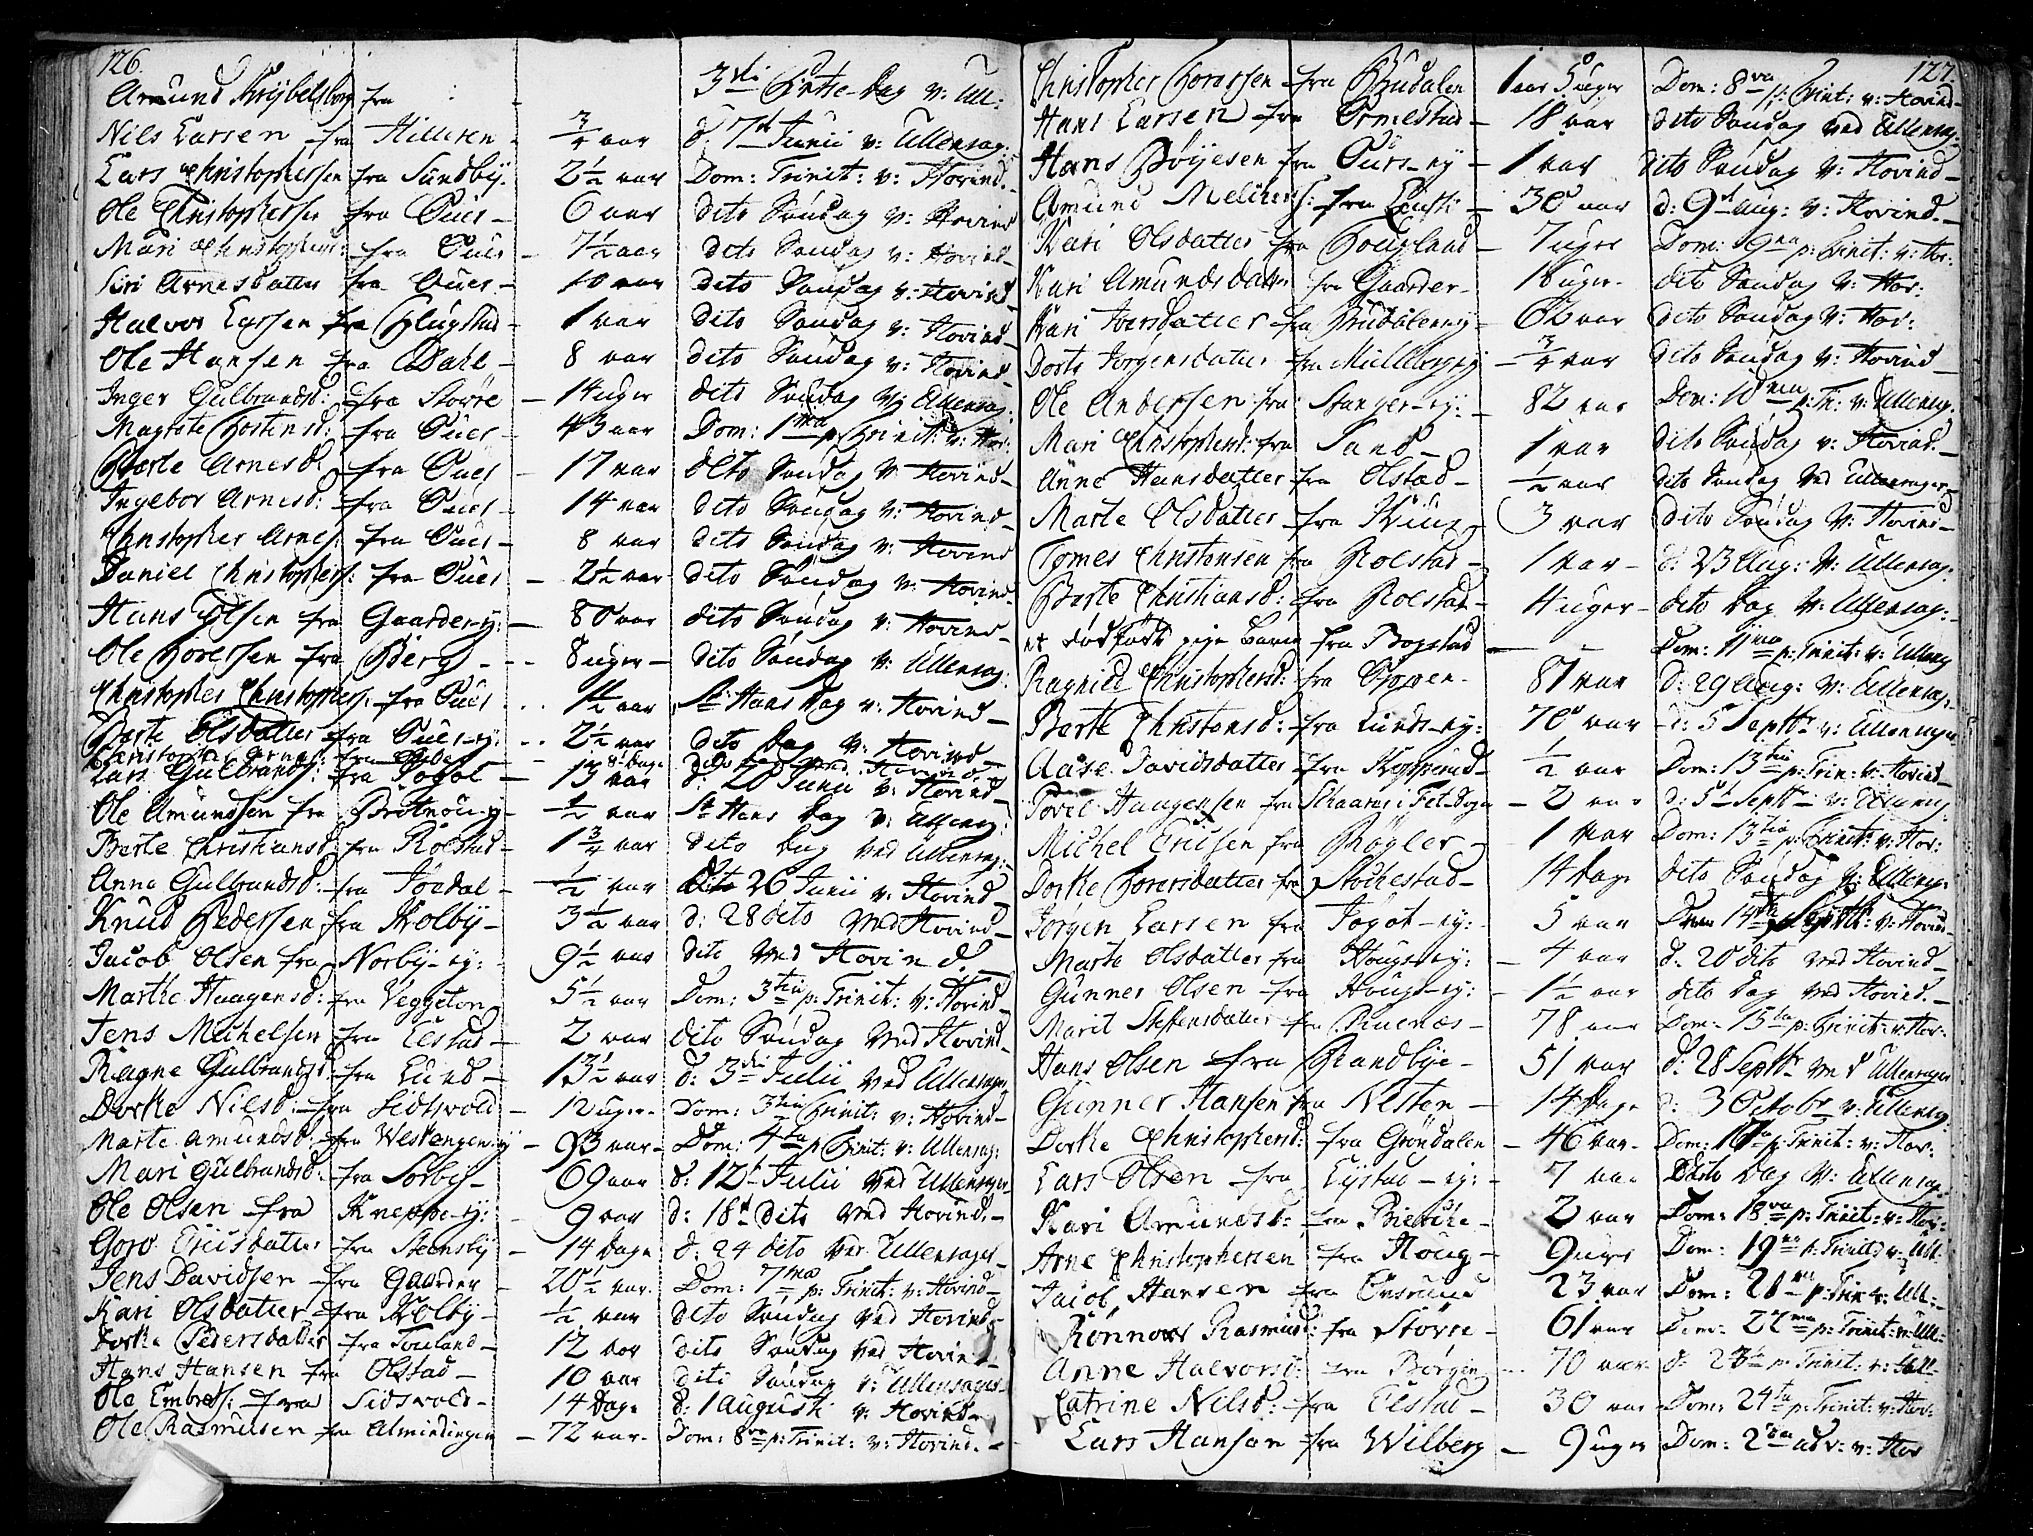 126.
Amund fra - 3die Pintse-Dag v: Ull:
Nils Larsen fra Hilleren - 3/4 aar d: 7de Junii v: Ullensag:
Lars Christophersen fra Sundby - 2 1/2 aar Dom: Trinit: v: Hovind.
Ole Christophersen fra Ouer - 6 aar dito Søndag v: Hovind
Mari Christophersd: fra Ouer - 7 1/2 aar dito Søndag v: Hovind
Siri Arnesdatter fra Ouer - 10 aar dito Søndag v: Hovind
Halvor Larsen fra - 1 aar dito Søndag v: Hovind
Ole Hansen fra Dahl - 8 aar dito Søndag v: Hovind
Inger Gulbrandsd: fra Storre - 14 uger dito Søndag v: Ullensag:
Magrete Thostensd: fra Ouer - 43 aar Dom: 1ma p: Trinit: v: Hov:
Berte Arnesd: fra Ouer - 17 aar dito Søndag v: Hovind
Ingebor Arnesd: fra Ouer - 14 aar dito Søndag v: Hovind
Christopher Arnes: fra Ouer - 8 aar dito Søndag v: Hovind
Daniel Christophers: fra Ouer - 2 1/2 aar dito Søndag v: Hovind
Hans Olsen fra Gaarder-ey: - 80 aar dito Søndag v: Hovind
Ole Toresen fra Berg - 8 uger - dito Søndag v: Ullensag:
Christopher Christophers: fra Ouer - 1/2 aar St: Hans Dag v: Hovind
Berte Olsdatter fra Ouer-ey: - 2 1/2 aar dito Dag v: Hovind
Christopher Arnes: fra - 8 Dage dito ved Hovind
Lars Gulbrands: fra Jogot - 13 aar d: 20 Junii v: Hovind
Ole Amundsen fra - 1/2 aar St Hans Dag v: Ullensag:
Berte Christiansd: fra Rolstad - 1 3/4 aar dito Dag ved Ullensag:
Anne Gulbrandsd: fra Jordal - 1/2 aar dito 26 Junii v: Hovind
Knud Pedersen fra Kolby - 3 1/2 aar d: 28 dito ved Hovind
Jacob Olsen fra Norby-ey: 9 1/2 aar dito ved Hovind.
Marthe Haagensd: fra Veggeton 5 1/2 aar Dom: 3tia p: Trinit: v: Hovind
Jens Michelsen fra Elstad - 2 aar dito Søndag ved Hovind
Ragne Gulbrandsd fra Lund - 13 1/2 aar d: 3die Julii ved Ullensager
Dorthe Nilsd: fra Sidsvold - 12 uger - Dom: 3tia Trinit: v: Hovind
Marte Amundsd: fra Westengen-ey - 93 aar - Dom: 4ta p: Trinit: v: Ullensag:
Mari Gulbrandsd: fra Sørby - 69 aar d: 12te Julii ved Ullensager
Ole Olsen fra Kneppe-ey: 9 aar d: 18de dito ved Hovind.
Goro Ericsdatter fra Steensby - 14 Dage d: 24 dito ved Ullensager
Jens Davidsen fra Gaarder - 20 1/2 aar. Dom: 7ma p: Trinit: v: Hovind
Kari Olsdatter fra Kolby - 1/2 aar dito Søndag ved Hovind
Dorthe Pedersdatter fra Touland - 12 aar dito Søndag ved Hovind
Hans Hansen fra Olstad - 10 aar dito Søndag v: Ullensager
Ole Embrets: fra Sidsvold - 14 Dage d: 1 Augusti v: Hovind
Ole Rasmussen fra Almindingen - 72 aar - Dom: 8va p: Trinit: v: Hovind.
127.
Christopher Toresen fra Budalen 1 aar 5 uger Dom: 8va p: Trinit: v: Hovind
Hans Larsen fra Ormestad - 18 aar dito Søndag ved Ullensag:
Hans Børjesen fra Ours-ey - 1 aar dito Søndag v: Hovind
Amund Melchiors: fra - 30 aar d: 9de Aug: v: Hovind.
Kari Olsdatter fra Hougland - 7 uger Dom: 9na p: Trinit: v: Hov:
Kari Amundsdatter fra Gaarder - 18 uger - dito Søndag v: Hov:
Kari Iversdatter fra Budalen-ey - 62 aar dito Søndag v: Hov:
Dorte Jorgensdatter fra - 3/4 aar dito Søndag v: Hovind
Ole Andersen fra Stanger-ey: - 82 aar Dom: 10ma p: Tr: v: Ullensag:
Mari Christophersd: fra Sand - 1 aar dito Søndag v: Hovind.
Anne Hansdatter fra Olstad - 1/2 aar dito Søndag ved Ullensager
Marte Olsdatter fra 3 aar dito Søndag v: Hovind
Tomes Christensen fra Rolstad - 1 aar - d: 23 Aug: v: Ullensag:
Berte Christiansd: fra Rolstad - 4 uger - dito Dag v: Ullensag:
et dødfødt pige barn fra Bogstad - Dom: 11ma p: Trinit: v: Ullensag
Ragnild Christophersd: fra - 87 aar d: 29 Aug: v: Ullensag:
Berte Christensd: fra Lunds-ey: 70 aar - d: 5 Septbr v: Ullensager
Aase Davidsdatter fra Kopperud - 1/2 aar Dom: 13tia p: Trin: v: Hovind
Povel Haagensen fra Schaarer i Fet-Sogn - 2 aar d: 5te Septbr v: Ullensag
Michel Ericsen fra Røgler - 1 aar Dom: 13tia p: Trinit: v: Hov:
Dorthe Toresdatter fra Stochestad - 14 Dage dito Søndag v: Ullensag:
Jorgen Larsen fra Jogot-ey: 5 aar Dom 14de Septbr: v: Hovind
Marte Olsdatter fra Hougs-ey: - 4 aar d: 20 dito ved Hovind
Gunner Olsen fra Hougs-ey: 1 1/2 aar dito Dag ved Hovind.
Marit Steffensdatter fra Ruenæs - 78 aar Dom: 15ta p: Trinit: v: Hov:
Hans Olsen fra Randbye - 51 aar d: 28 Septbr ved Ullensager
Gunner Hansen fra Nesten - 14 Dage d: 3 Octobr v: Ullensag
Dorthe Christophersd: fra Grøndalen - 46 aar - Dom: 17a p: Trinit: v: Hov:
Lars Olsen fra Eystad-ey: - 7 aar Dito Dag v: Ullensag
Kari Amundsd: fra Bierche - 2 aar Dom: 18va p: Trinit: v: Hov:
Arne Christophersen fra Houg - 9 uger Dom: 19na p: Trinit: v: Ull:
Jacob Hansen fra Onsrud 23 aar Dom: 20ma p: Trin: v: Ull:
Rønnow Rasmusd: fra Storre - 61 aar Dom: 22ma p: Trinit: v: Ull:
Anne Halvorsd: fra Børgen - 70 aar d: 23tia p: Trinit: v: Ull:
Catrine Nilsd: fra Elstad - 30 aar Dom: 24ta p: Trinit: v: Hov:
Lars Hansen fra Wilberg - 9 uger Dom: 2da adv: v: Hov